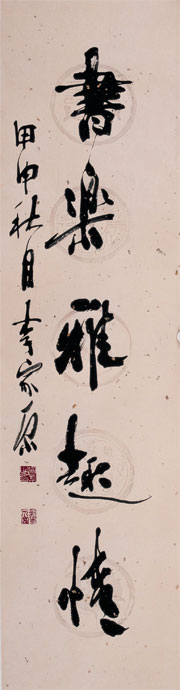 書樂雅趣情
甲申秋月李家原